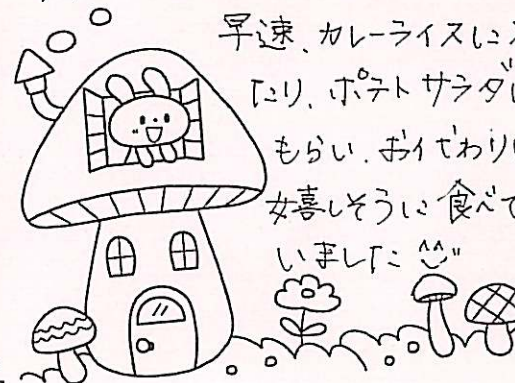 早速、カレーライスに入
たり、ポテトサラダに
もらい、おイせわり
嬉しそうに食べて
いました